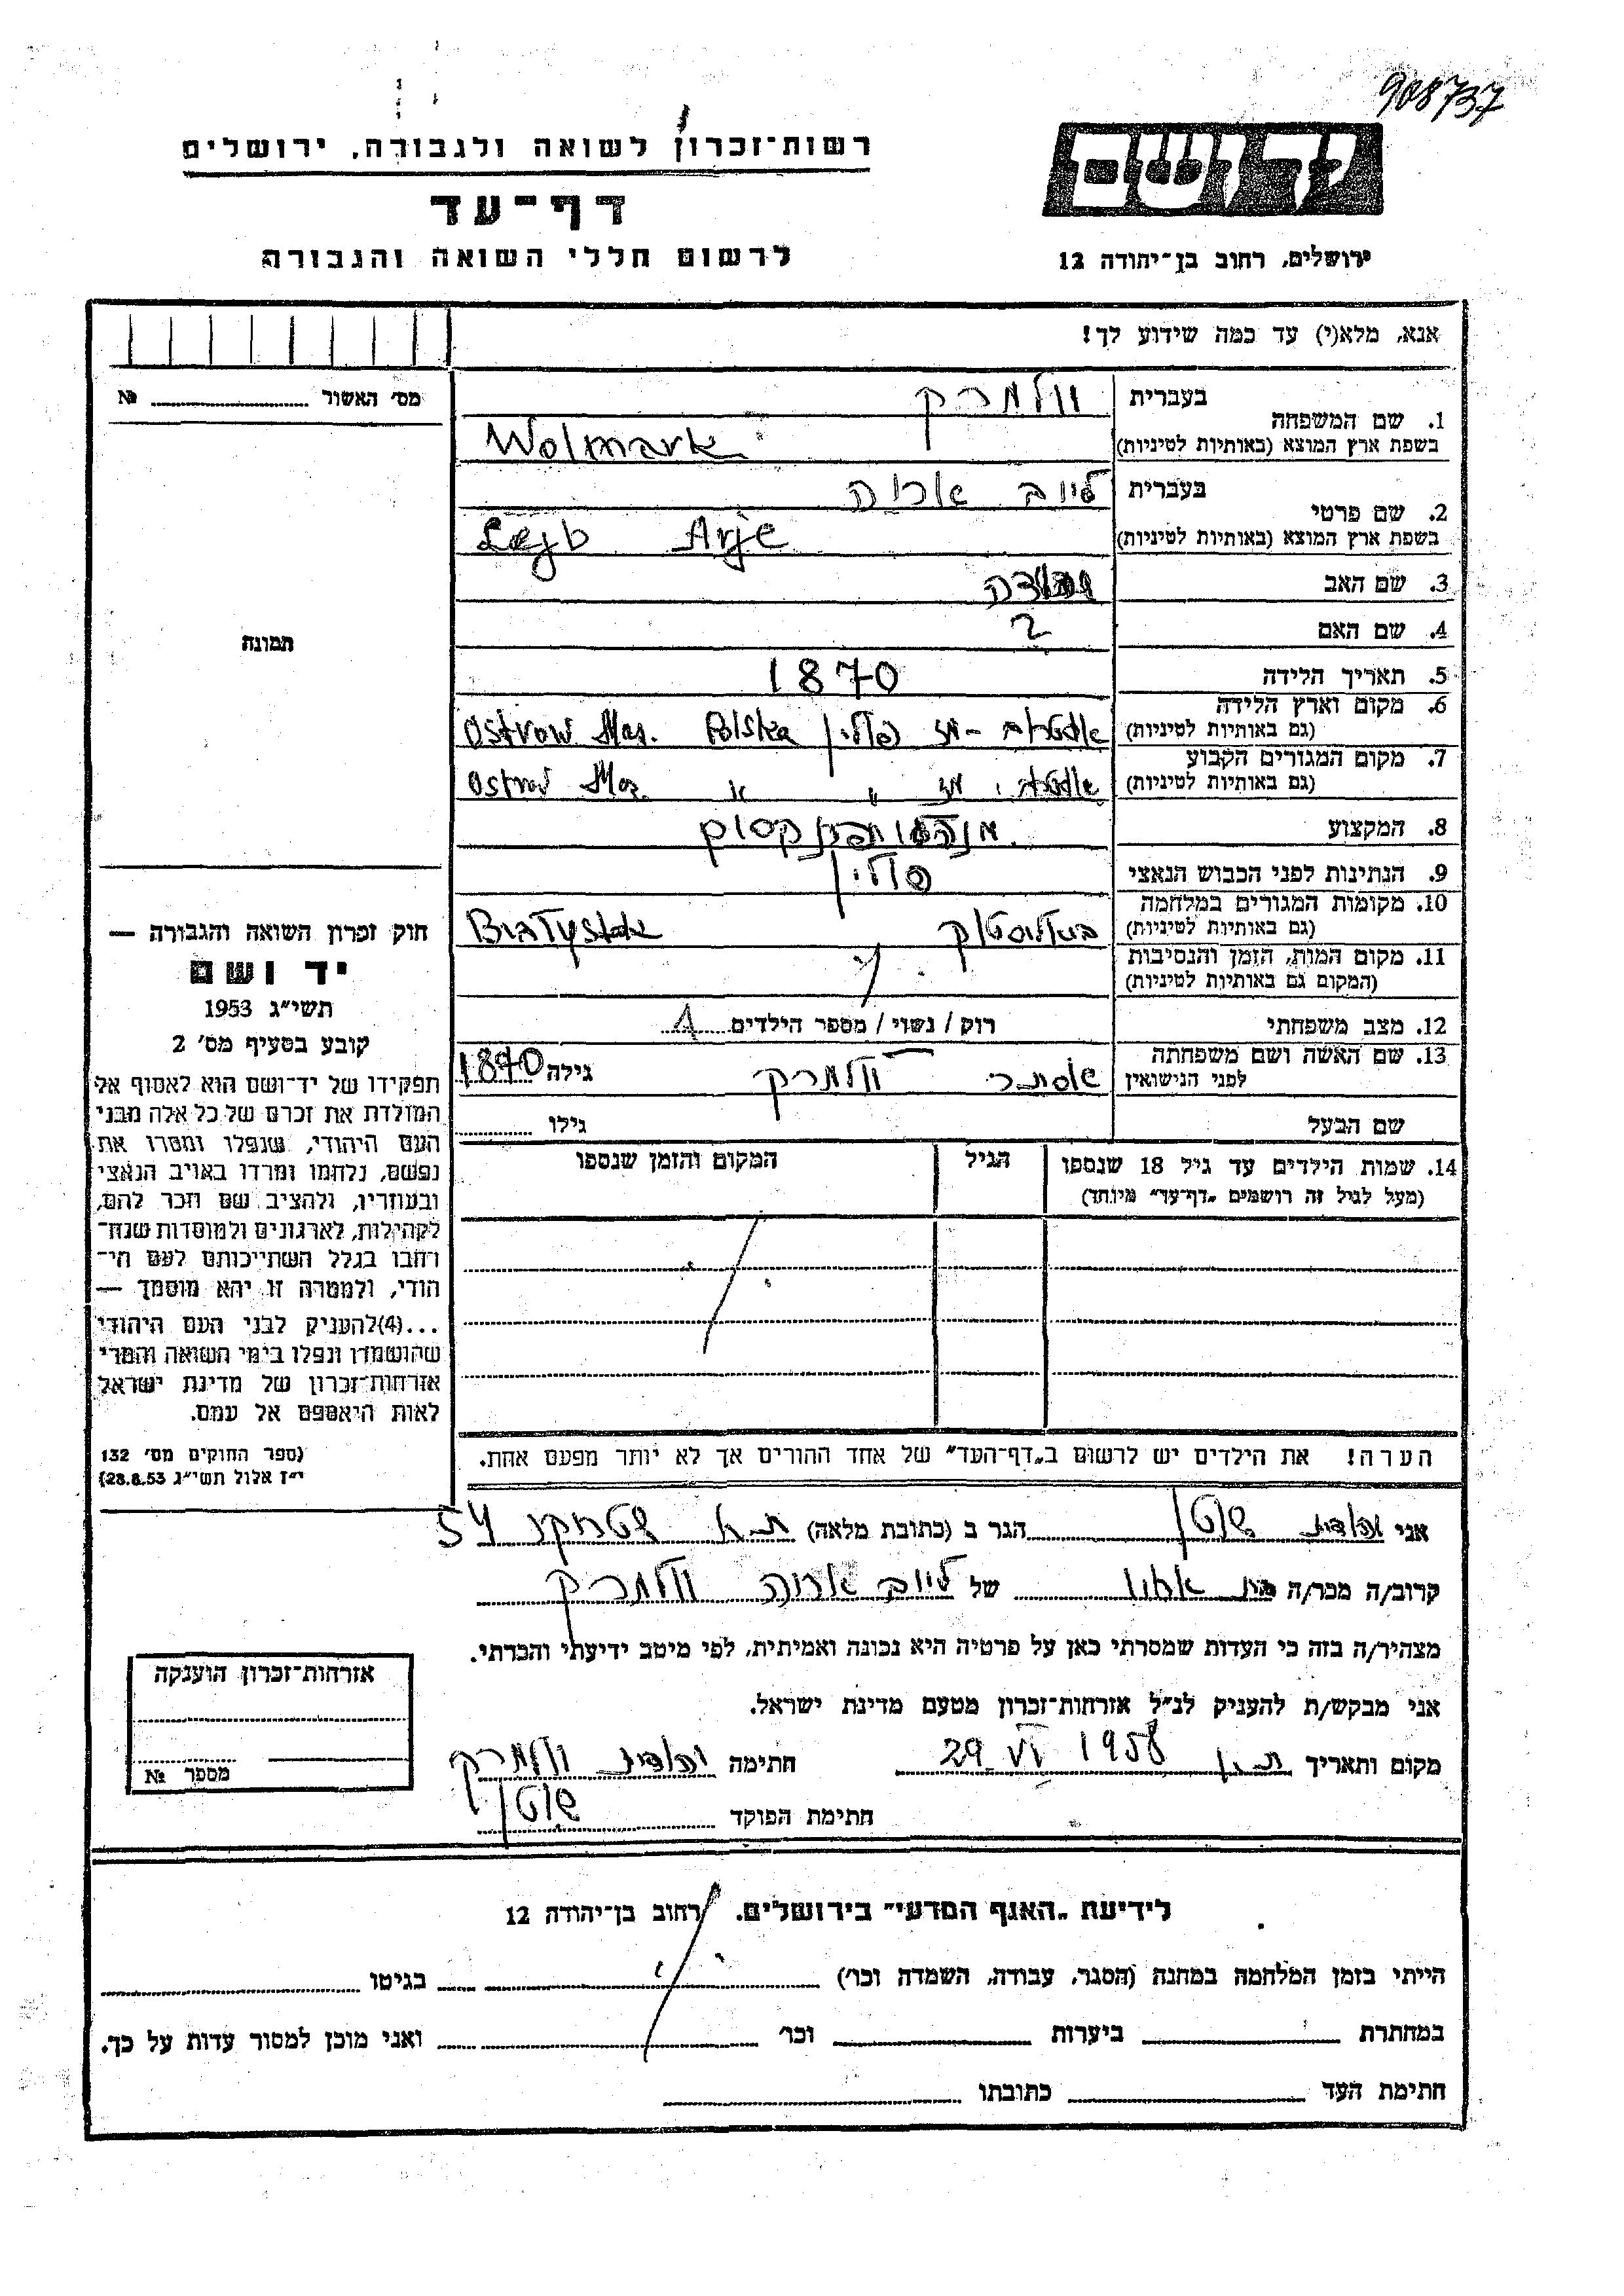 908737
רשות־זכרון לשואה ולגבורה, ירושלים
דף־עד
לרשום חללי השואה והגבורה
ידושם
ירושלים, רחוב בן־יהודה 12
אנא, מלא(י) עד כמה שידוע לך!
מס׳ האשור № 
תמונה
1. שם המשפחה
בעברית וולמרק
בשפת ארץ המוצא (באותיות לטיניות) Wolmark
2. שם פרטי
בעברית לייב אריה
בשפת ארץ המוצא (באותיות לטיניות) Lejb Arje
3. שם האב
4. שם האם ?
5. תאריך הלידה 1870
6. מקום וארץ הלידה
(גם באותיות לטיניות) אוסטרוב - מז פולין Ostrow Maz. Polska
7. מקום המגורים הקבוע
(גם באותיות לטיניות) מז " " Ostrow Maz.
8. המקצוע
9. הנתינות לפני הכבוש הנאצי פולין
10. מקומות המגורים במלחמה
(גם באותיות לטיניות) ביאליסטוק Białystok
11. מקום המות, הזמן והנסיבות
(המקום גם באותיות לטיניות)
12. מצב משפחתי רוק / נשוי / מספר הילדים 1
13. שם האשה ושם משפחתה
לפני הנישואין אסתר וולמרק גילה 1870
שם הבעל גילו
14. שמות הילדים עד גיל 18 שנספו
(מעל לגיל זה רושמים „דף־עד״ מיוחד)
הגיל
המקום והזמן שנספו
הערה! את הילדים יש לרשום ב„דף־העד״ של אחד ההורים אך לא יותר מפעם אחת.
חוק זכרון השואה והגבורה —
יד ושם
תשי״ג 1953
קובע בסעיף מס׳ 2
תפקידו של יד־ושם הוא לאסוף אל
המולדת את זכרם של כל אלה מבני
העם היהודי, שנפלו ומסרו את
נפשם, נלחמו ומרדו באויב הנאצי
ובעוזריו, ולהציב שם וזכר להם,
לקהילות, לארגונים ולמוסדות שנח־
רחבו בגלל השתייכותם לעם הי־
הודי, ולמטרה זו יהא מוסמך —
...(4)להעניק לבני העם היהודי
שהושמדו ונפלו בימי השואה והמרי
אזרחות־זכרון של מדינת ישראל
לאות היאספם אל עמם.
(ספר החוקים מס׳ 132
י״ז אלול תשי״ג 28.8.53)
אני יהודית שוטן הגר ב (כתובת מלאה) ת״א 54
קרוב/ה מכר/ה של לייב אריה וולמרק
מצהיר/ה בזה כי העדות שמסרתי כאן על פרטיה היא נכונה ואמיתית, לפי מיטב ידיעתי והכרתי.
אני מבקש/ת להעניק לנ״ל אזרחות־זכרון מטעם מדינת ישראל.
מקום ותאריך ת״א 29 VI 1958 חתימה יהודית וולמרק
שוטן
חתימת הפוקד
אזרחות־זכרון הוענקה
מספר №
לידיעת „האגף המדעי״ בירושלים. רחוב בן־יהודה 12
הייתי בזמן המלחמה במחנה (הסגר, עבודה, השמדה וכר׳) בגיטו
במחתרת ביערות וכר׳ ואני מוכן למסור עדות על כך.
חתימת העד כתובתו